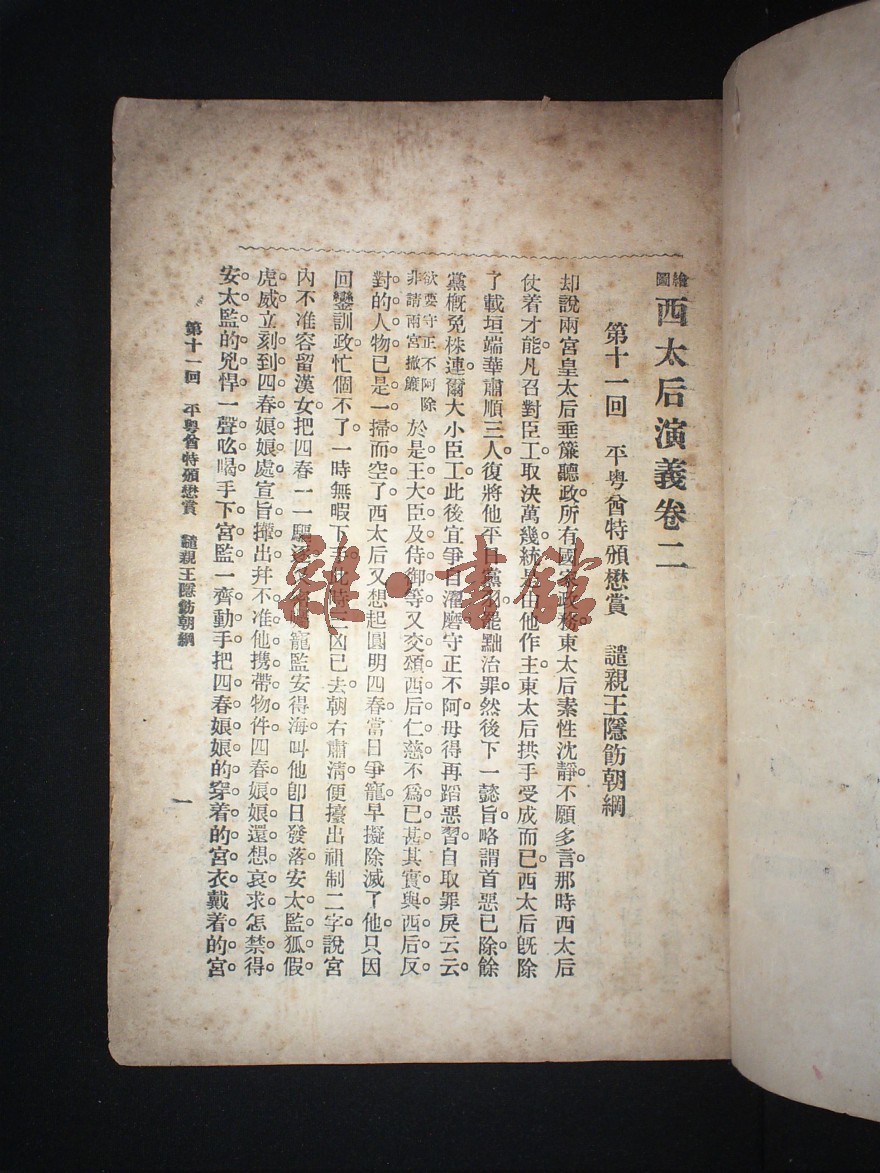 繪圖西太后演義卷二
第十一回 平粵酋特頒懋賞 譴親王隱飭朝綱
却說兩宮皇太后垂簾聽政。所有國家政務。東太后素性沈靜。不願多言。那時西太后
仗着才能。凡召對臣工。取決萬幾。統是由他作主。東太后拱手受成而已。西太后旣除
了載垣端華肅順三人。復將他平日黨羽。罷黜治罪。然後下一懿旨。略謂首惡已除。餘
黨概免株連。爾大小臣工。此後宜爭自濯磨。守正不阿。毋得再蹈惡習。自取罪戾云云。
欲要守正不阿除非請兩宮撤簾 於是王大臣及侍御等。又交頌西后仁慈。不爲已甚。其實與西后反
對的人物。已是一掃而空了。西太后又想起圓明四春。當日爭寵。早擬除滅了他。只因
回鑾訓政。忙個不了。一時無暇下手。此時三凶已去。朝右肅淸。便擡出祖制二字。說宮
內不准容留漢女。把四春一一驅逐。寵監安得海。叫他卽日發落。安太監狐假
虎威。立刻到四春娘娘處宣旨攆出。幷不准他携帶物件。四春娘娘還想哀求。怎禁得
安太監的兇悍。一聲吆喝。手下宮監一齊動手。把四春娘娘的穿着的宮衣。戴着的宮
第十一回 平粵酋特頒懋賞 譴親王隱飭朝綱
一
雜·書館